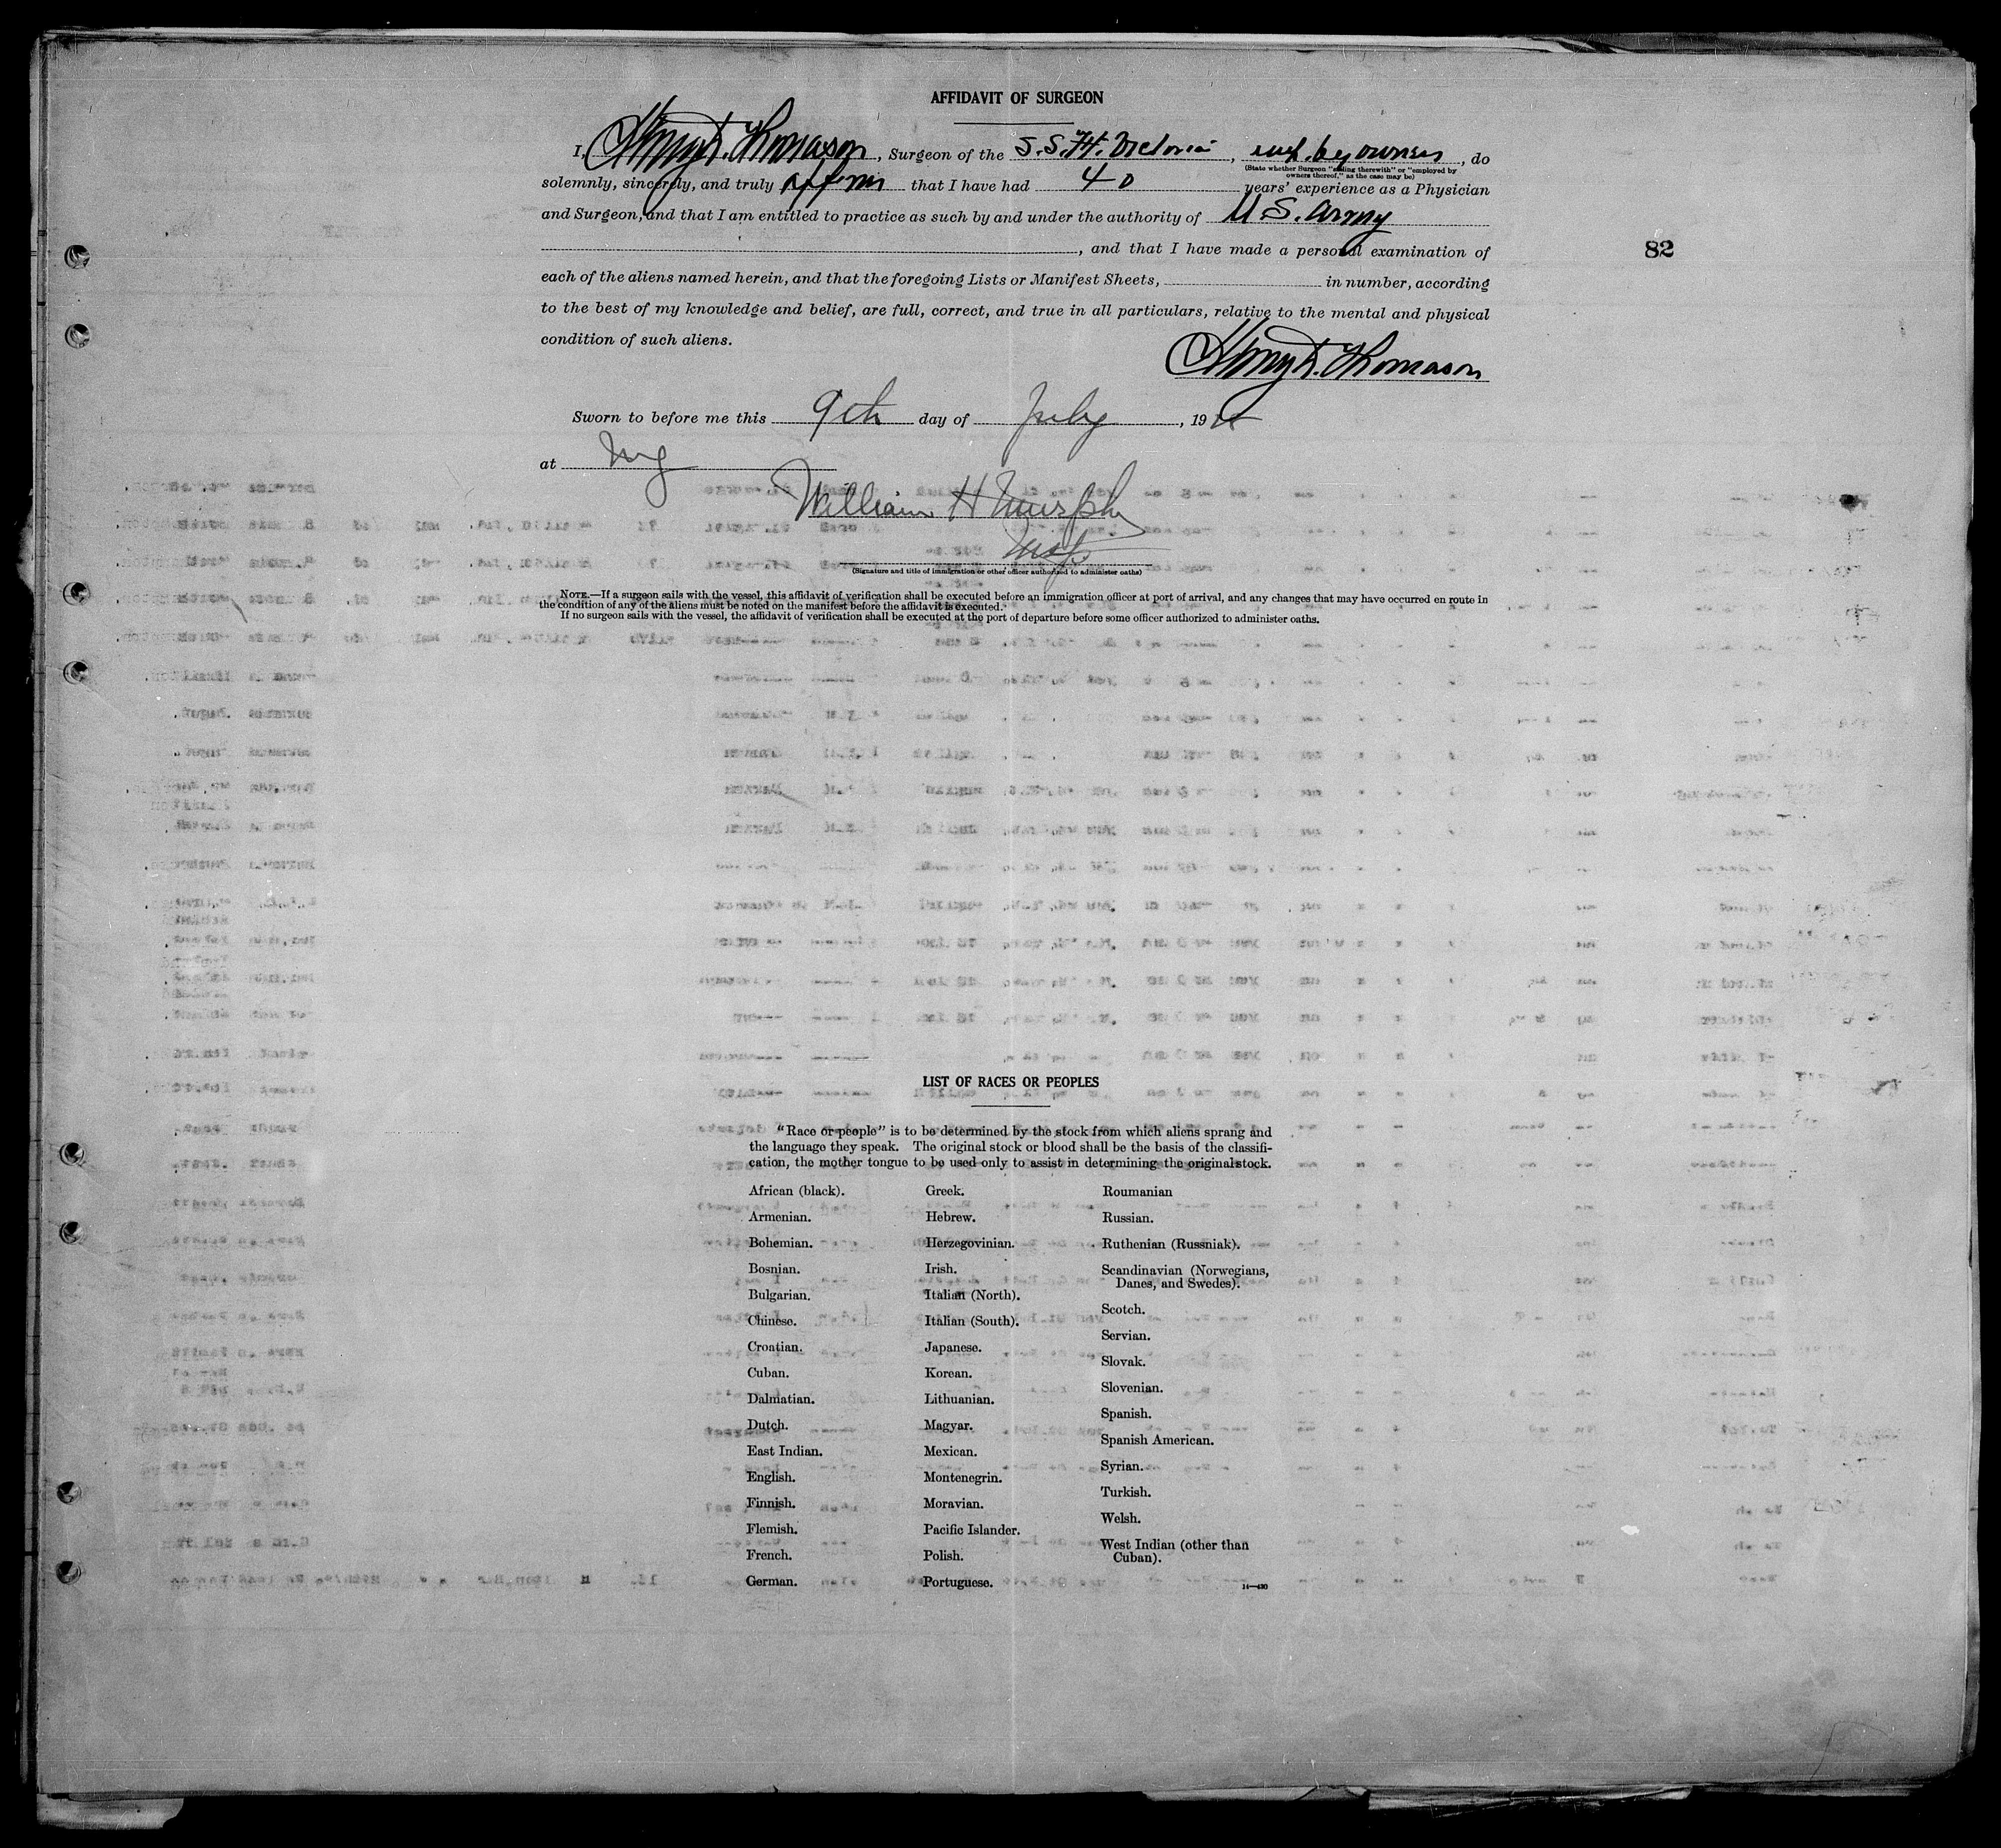 AFFIDAVIT OF SURGEON
I, Thomason, Surgeon of the S.S. Ft. Victoria, emp. by owners, do
(State whether Surgeon "sailing therewith" or "employed by
owners thereof," as the case may be)
solemnly, sincerely, and truly affirm that I have had 40 years' experience as a Physician
and Surgeon, and that I am entitled to practice as such by and under the authority of U.S. Army
, and that I have made a personal examination of
82
each of the aliens named herein, and that the foregoing Lists or Manifest Sheets, in number, according
to the best of my knowledge and belief, are full, correct, and true in all particulars, relative to the mental and physical
condition of such aliens.
Thomason
Sworn to before me this 9th day of July, 19
at NY
William H Murphy
Insp.
(Signature and title of immigration or other officer authorized to administer oaths)
NOTE.—If a surgeon sails with the vessel, this affidavit of verification shall be executed before an immigration officer at port of arrival, and any changes that may have occurred en route in
the condition of any of the aliens must be noted on the manifest before the affidavit is executed.
If no surgeon sails with the vessel, the affidavit of verification shall be executed at the port of departure before some officer authorized to administer oaths.
LIST OF RACES OR PEOPLES
"Race or people" is to be determined by the stock from which aliens sprang and
the language they speak. The original stock or blood shall be the basis of the classifi-
cation, the mother tongue to be used only to assist in determining the original stock.
African (black).
Armenian.
Bohemian.
Bosnian.
Bulgarian.
Chinese.
Croatian.
Cuban.
Dalmatian.
Dutch.
East Indian.
English.
Finnish.
Flemish.
French.
German.
Greek.
Hebrew.
Herzegovinian.
Irish.
Italian (North).
Italian (South).
Japanese.
Korean.
Lithuanian.
Magyar.
Mexican.
Montenegrin.
Moravian.
Pacific Islander.
Polish.
Portuguese.
Roumanian
Russian.
Ruthenian (Russniak).
Scandinavian (Norwegians,
Danes, and Swedes).
Scotch.
Servian.
Slovak.
Slovenian.
Spanish.
Spanish American.
Syrian.
Turkish.
Welsh.
West Indian (other than
Cuban).
14—430